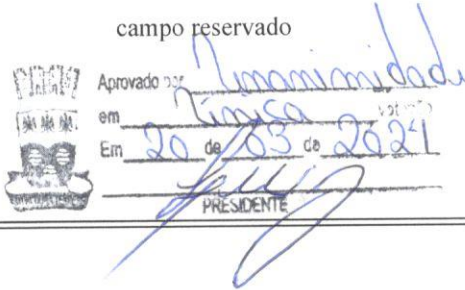 campo reservado
Aprovado por Unanimidade
em Única votação
Em 20 de 03 de 2024
PRESIDENTE